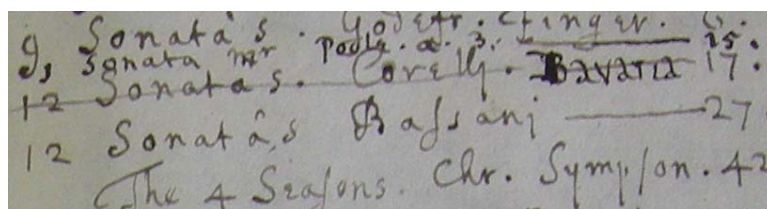 9, Sonata's. Godefr. Finger.
Sonata mr Podle. a. 3. 15.
12 Sonatas. Corelly. Bavaria 17.
12 Sonatâ,s Baſsani 27
The 4 Seaſons. Chr. Sympſon. 42